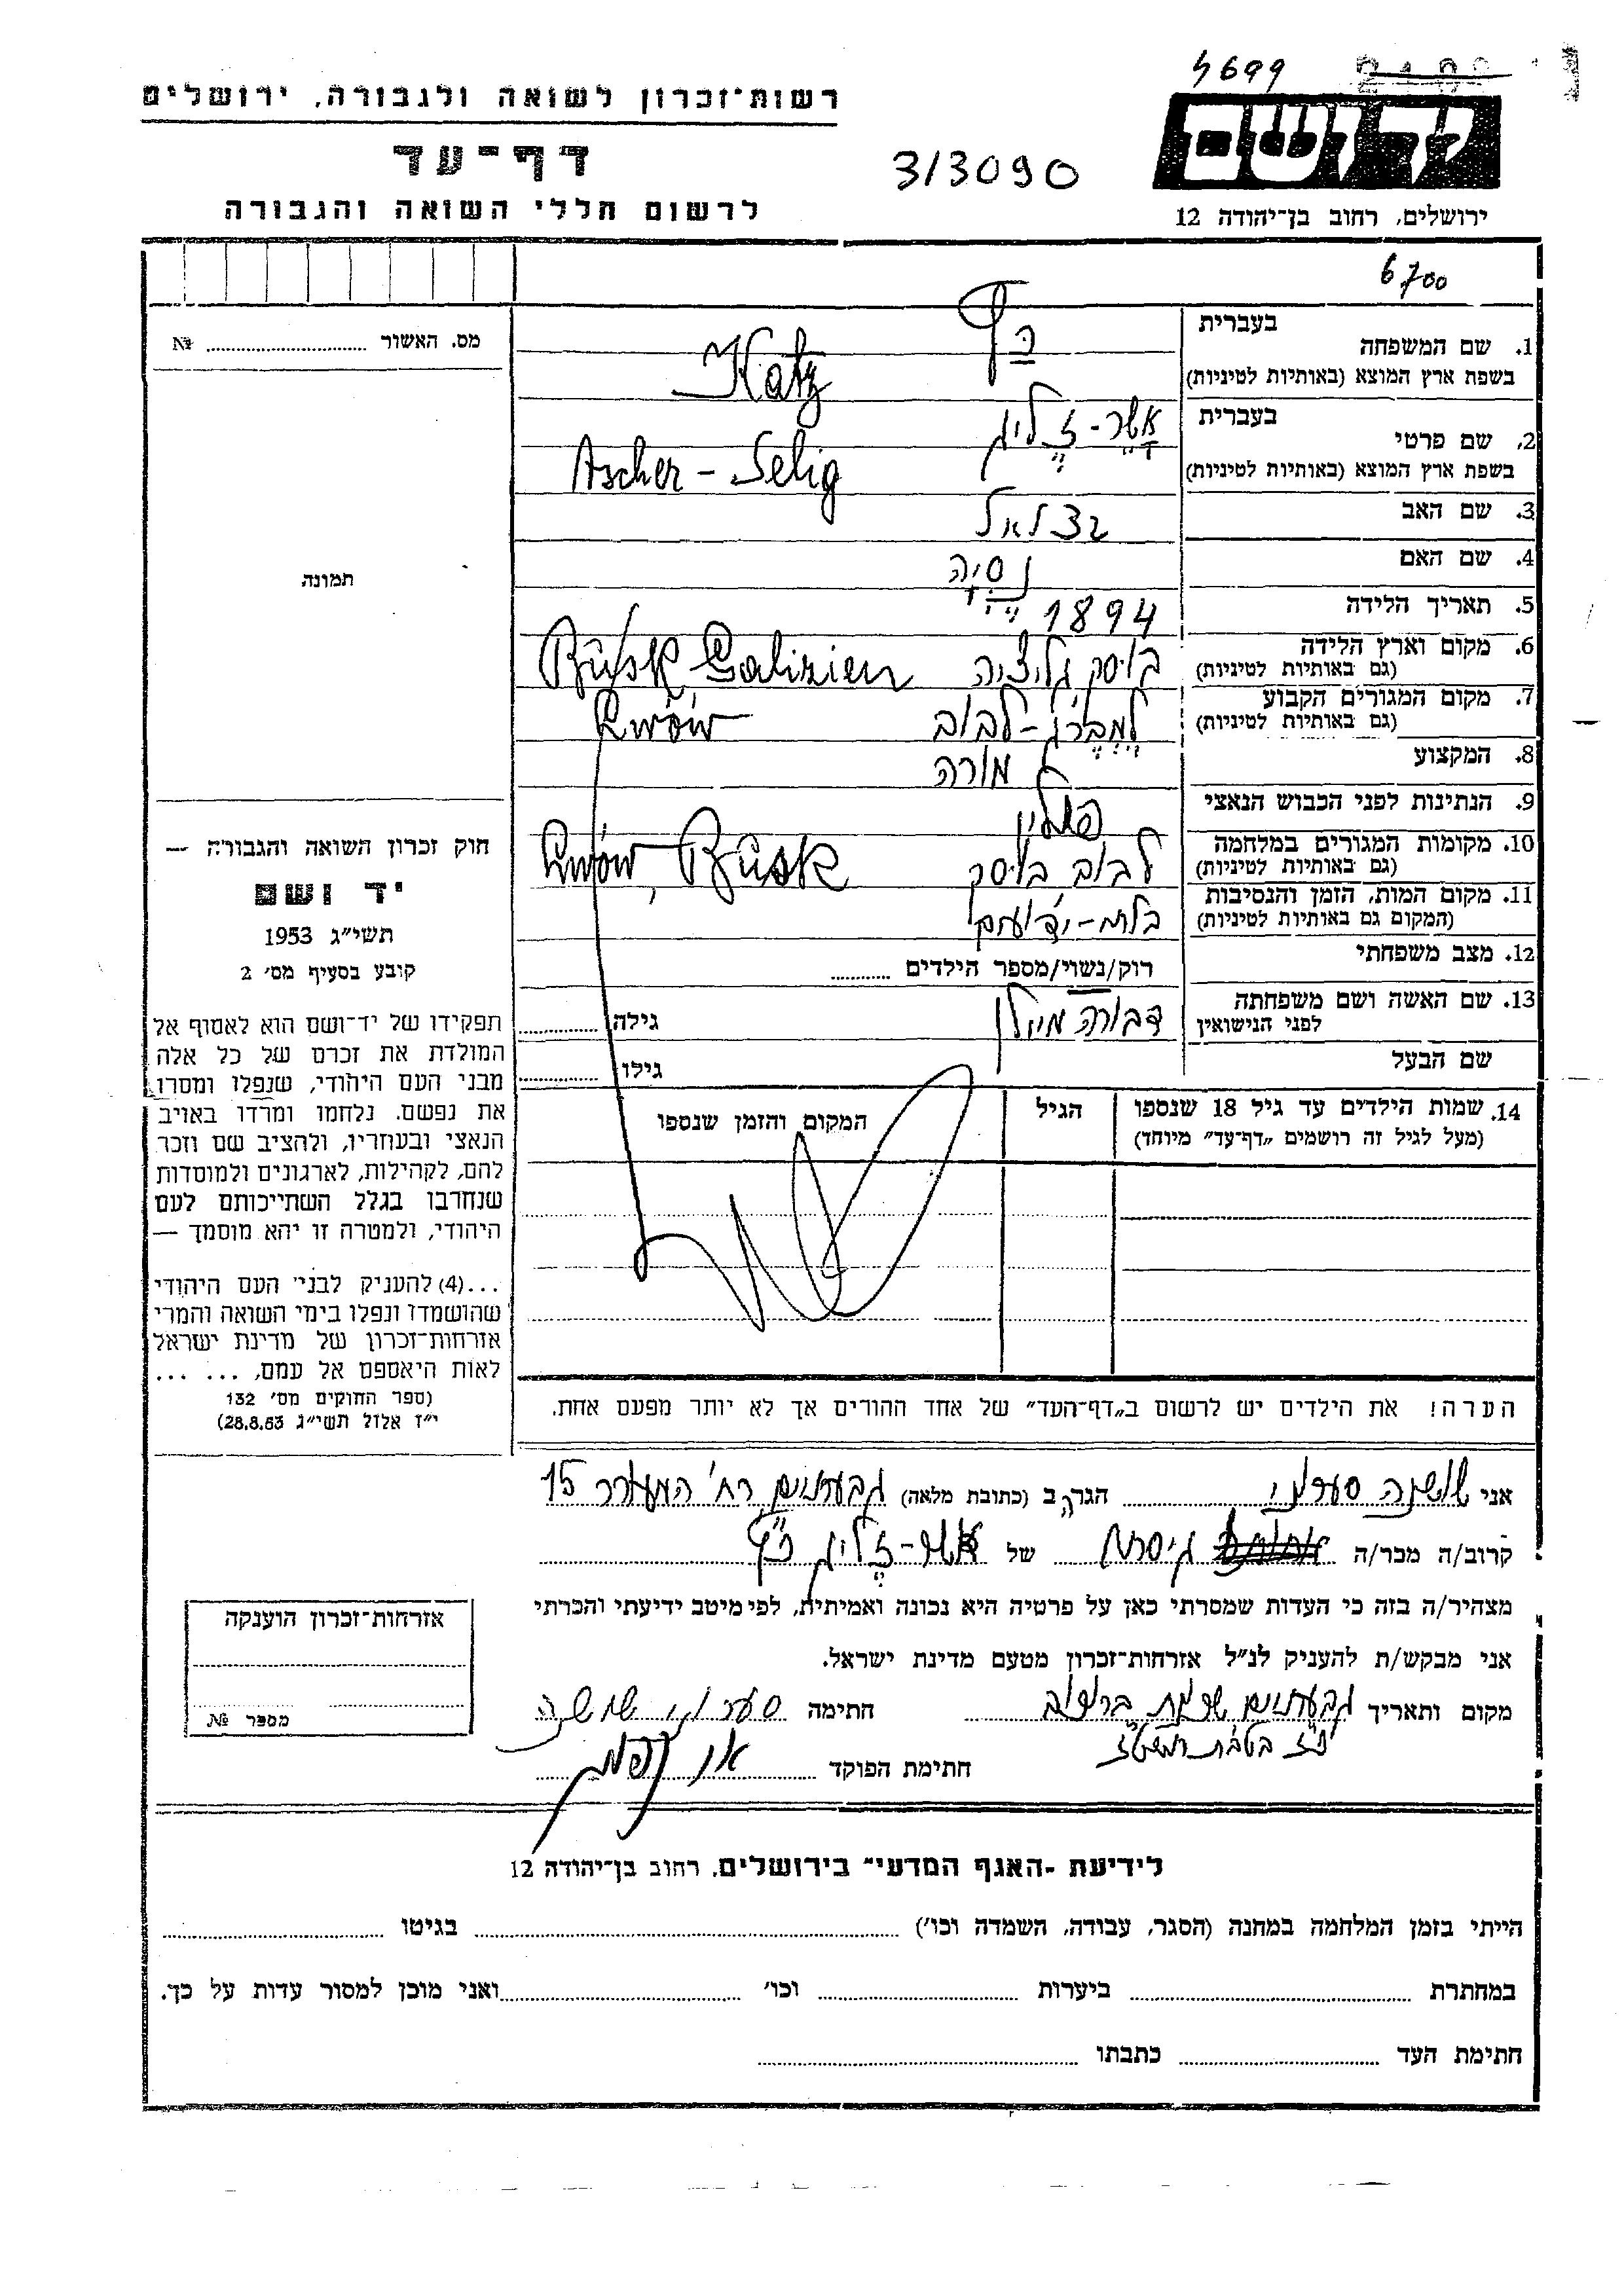 4699
רשות־זכרון לשואה ולגבורה, ירושלים
דף־עד
3/3090
לרשום חללי השואה והגבורה
ירושלים, רחוב בן־יהודה 12
6700
בעברית
1. שם המשפחה
כץ
Katz
בשפת ארץ המוצא (באותיות לטיניות)
מס. האשור № 
בעברית
2. שם פרטי
אשר-זליג
Ascher - Selig
בשפת ארץ המוצא (באותיות לטיניות)
3. שם האב בצלאל
4. שם האם נסיה
תמונה
5. תאריך הלידה 1894
6. מקום וארץ הלידה בוסק גליציה Büsk Galizien
(גם באותיות לטיניות)
7. מקום המגורים הקבוע למברג-לבוב Lwów
(גם באותיות לטיניות)
8. המקצוע מורה
9. הנתינות לפני הכבוש הנאצי פולין
10. מקומות המגורים במלחמה לבוב, בוסק Lwów, Büsk
(גם באותיות לטיניות)
11. מקום המות, הזמן והנסיבות
(המקום גם באותיות לטיניות)
12. מצב משפחתי רוק/נשוי/מספר הילדים
13. שם האשה ושם משפחתה דבורה גילה
לפני הנישואין
שם הבעל גילו
14. שמות הילדים עד גיל 18 שנספו הגיל המקום והזמן שנספו
(מעל לגיל זה רושמים „דף־עד” מיוחד)
חוק זכרון השואה והגבורה —
יד ושם
תשי״ג 1953
קובע בסעיף מס׳ 2
תפקידו של יד־ושם הוא לאסוף אל
המולדת את זכרם של כל אלה
מבני העם היהודי, שנפלו ומסרו
את נפשם. נלחמו ומרדו באויב
הנאצי ובעוזריו, ולהציב שם וזכר
להם, לקהילות, לארגונים ולמוסדות
שנחרבו בגלל השתייכותם לעם
היהודי, ולמטרה זו יהא מוסמך —
...(4) להעניק לבני העם היהודי
שהושמדו ונפלו בימי השואה והמרי
אזרחות־זכרון של מדינת ישראל
לאות היאספם אל עמם, ... ...
(ספר החוקים מס׳ 132
י״ז אלול תשי״ג 28.8.53)
הערה! את הילדים יש לרשום ב„דף־העד” של אחד ההורים אך לא יותר מפעם אחת.
אני שושנה הגר/ה ב (כתובת מלאה) גבעתיים רח׳ 15
קרוב/ה מכר/ה גיסתו של אשר-זליג כץ
מצהיר/ה בזה כי העדות שמסרתי כאן על פרטיה היא נכונה ואמיתית, לפי מיטב ידיעתי והכרתי
אני מבקש/ת להעניק לנ״ל אזרחות־זכרון מטעם מדינת ישראל.
מקום ותאריך גבעתיים חתימה שושנה
חתימת הפוקד
אזרחות־זכרון הוענקה
מספר №
לידיעת ״האגף המדעי״ בירושלים, רחוב בן־יהודה 12
הייתי בזמן המלחמה במחנה (הסגר, עבודה, השמדה וכו׳) בגיטו
במחתרת ביערות וכו׳ ואני מוכן למסור עדות על כך.
חתימת העד כתבתו